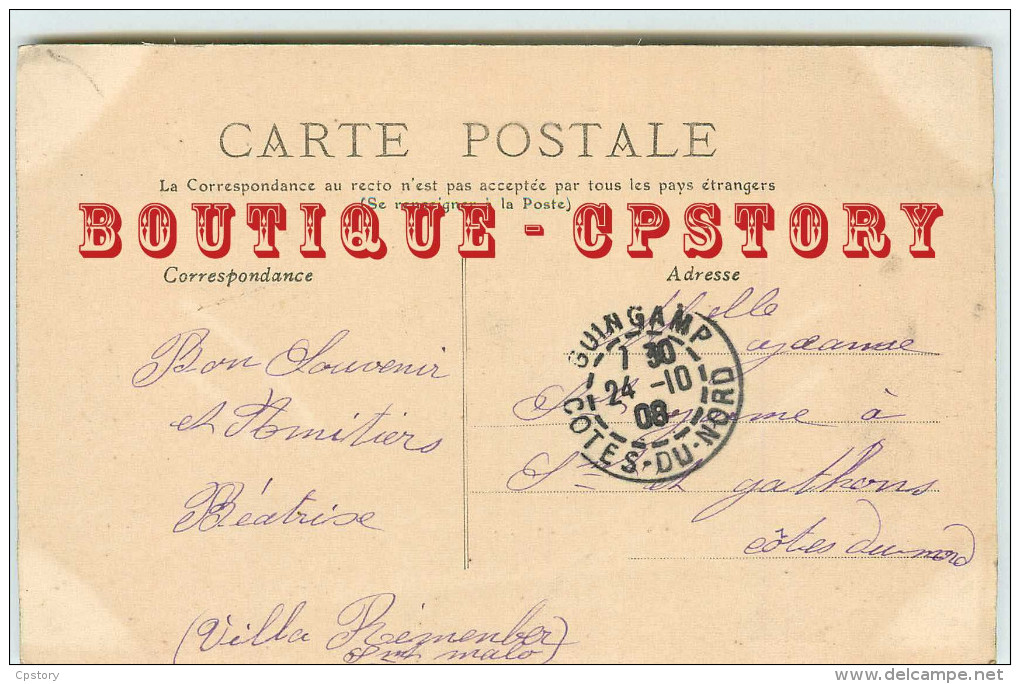 CARTE POSTALE
La Correspondance au recto n'est pas acceptée par tous les pays étrangers
(Se renseigner à la Poste)
BOUTIQUE - CPSTORY
Correspondance
Adresse
Bon Souvenir
et Amitiers
Béatrixe
(Villa Rémenber)
malo
GUINGAMP
30
24 -10
08
COTES-DU-NORD
elle
à
gathons
côtes du nord
Cpstory
delcampe.net